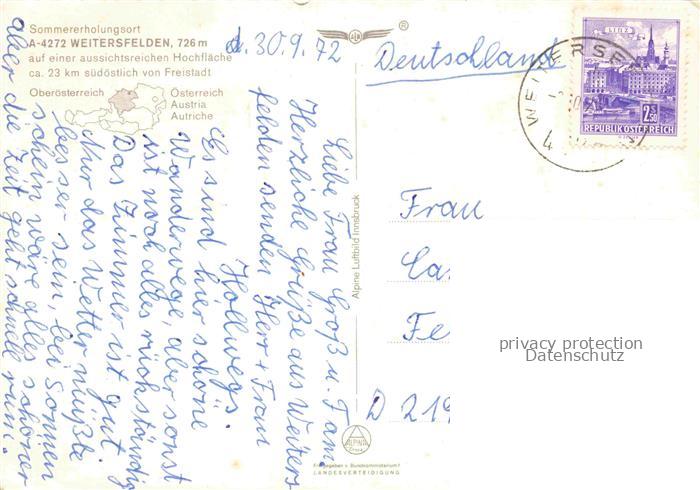 Sommererholungsort
A-4272 WEITERSFELDEN, 726 m
auf einer aussichtsreichen Hochfläche
ca. 23 km südöstlich von Freistadt
Oberösterreich
Österreich
Austria
Autriche
d. 30.9.72
Liebe Frau Groß u. Fam.
Herzliche Grüße aus Weiters
felden senden Herr + Frau
Hollwegs.
Es sind hier schöne
Wanderwege, aber sonst
ist noch alles rückständig
Das Zimmer ist gut
Nur das Wetter müßte
besser sein, bei Sonnen
schein wäre alles schöner
aber die Zeit geht schnell rum.
Alpine Luftbild Innsbruck
ALPINE
Freigegeben v. Bundesministerium f.
LANDESVERTEIDIGUNG
®
Deutschland
WEITERSF
4
LINZ
2.50
REPUBLIK ÖSTERREICH
Frau
Ca
Fe
D 219
privacy protection
Datenschutz